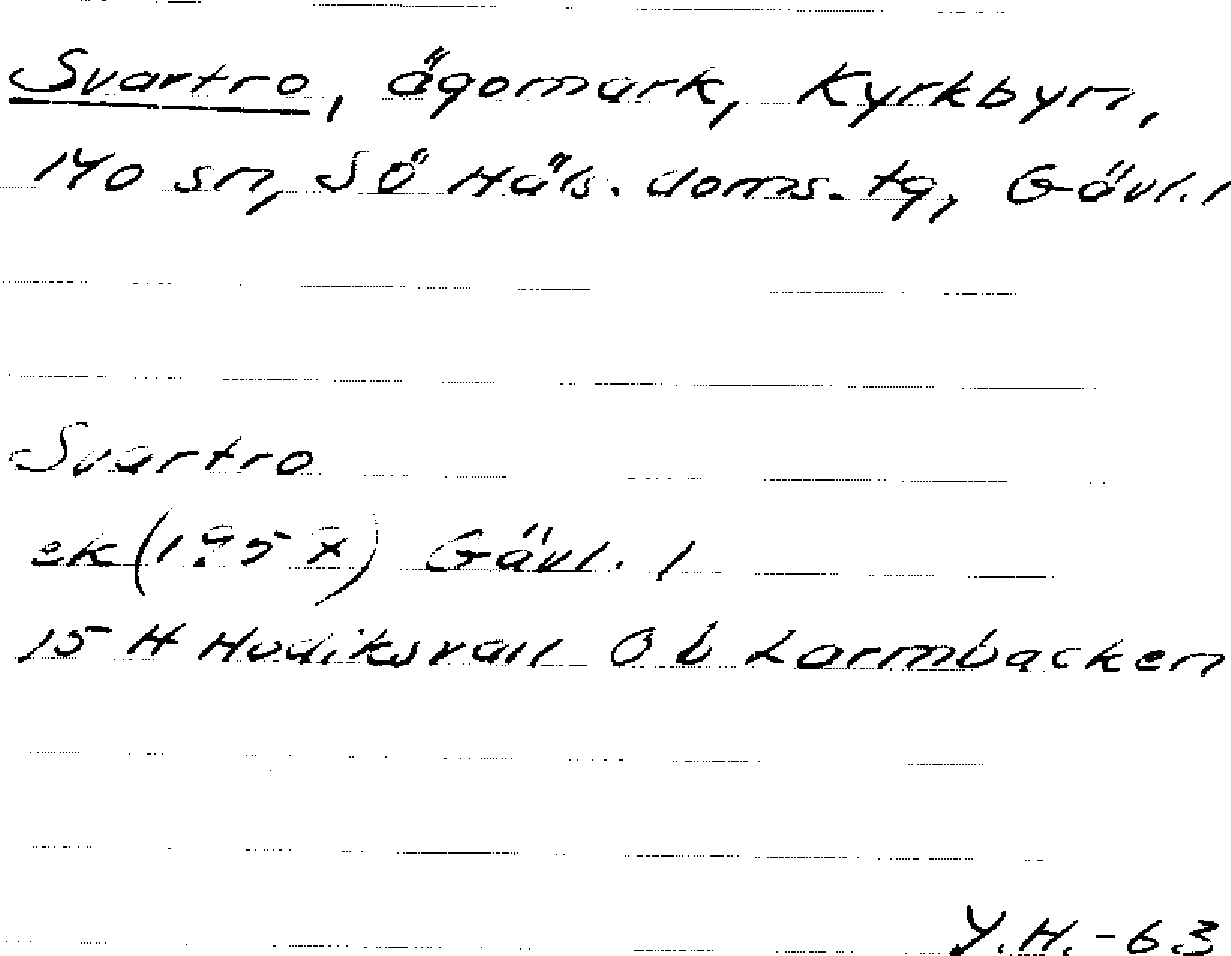 Svartro, ägomark, Kyrkbyn,
Mo sn, SÖ Häls. doms. tg, Gävl. l
Svartro
ek Gävl. l
15 H Hudiksvall 0 b Lormbacken
Y.H.-63